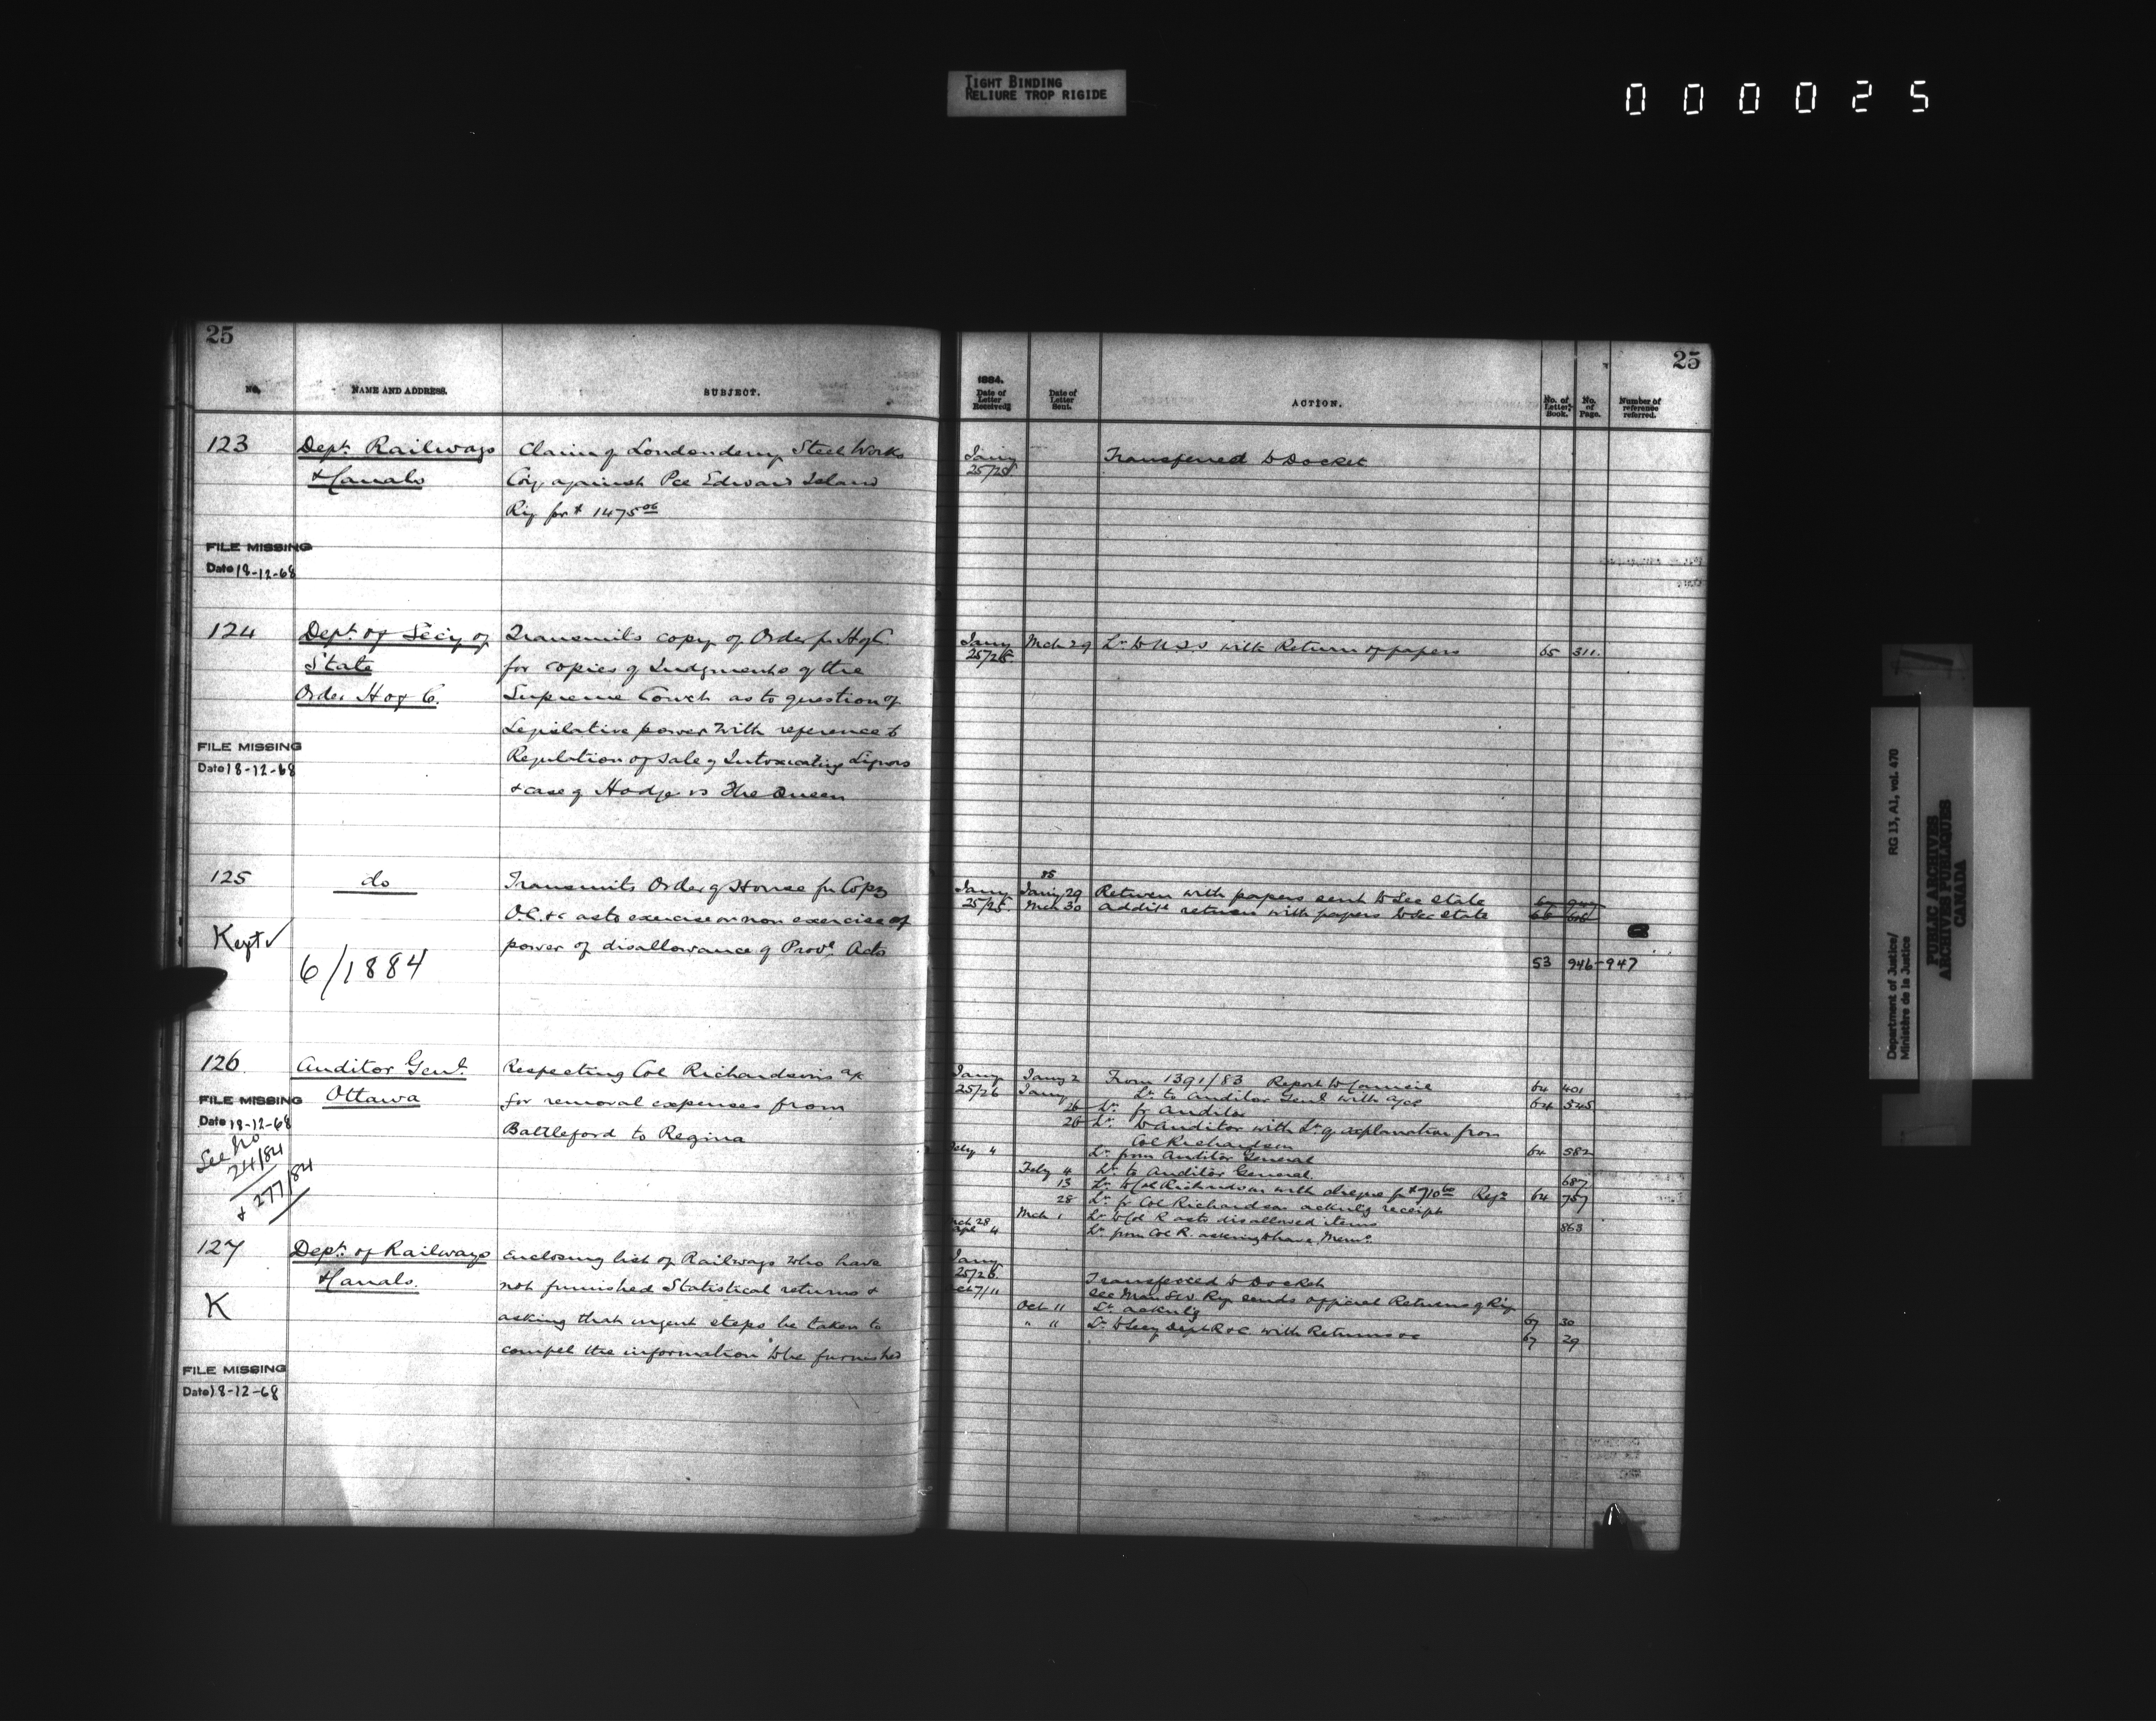 TIGHT BINDING
RELIURE TROP RIGIDE
000025
25
NO.
NAME AND ADDRESS.
SUBJECT.
123
Dept. Railways
& Canals
Claim of Londonderry Steel Works
Coy. against Pce Edward Island
Ry for $ 1475.06
FILE MISSING
Date 18-12-68
124
Dept. of Secy of
State
Order H of C.
Transmits copy of Order fr H of C.
for copies of Judgments of the
Supreme Court as to question of
Legislative power with reference to
Regulation of sale of Intoxicating Liquors
& case of Hodge vs The Queen
FILE MISSING
Date 18-12-68
125
do
Transmits Order of House for Copy
O.C. &c as to exercise or non exercise of
power of disallowance of Provl. Acts
Kept ✓
6/1884
126.
Auditor Genl.
Ottawa
Respecting Col Richardson's a/c
for removal expenses from
Battleford to Regina
FILE MISSING
Date 18-12-68
See No
24/84
& 277/84
127
Dept. of Railways
& Canals.
Enclosing list of Railways who have
not furnished Statistical returns &
asking that urgent steps be taken to
compel the information to be furnished
K
FILE MISSING
Date 18-12-68
25
1884.
Date of Letter Received.
Date of Letter Sent.
ACTION.
No. of Letter Book.
No. of Page.
Number of reference referred.
Jany 25/25
Transferred to Docket
Jany 25/25
Mch 29
Lr. to U.S.S with Return of papers
65 311.
Jany 25/25
85
Jany 29
Return with papers sent to Sec State
Mch 30
Addit. return with papers to Sec State
53 946-947
Jany 25/26
Jany 2
From 1391/83 Report to Council
64 401
Jany
Lr. to Auditor Genl. with a/cs
64 545
26 Lr. fr Auditor
26 Lr. to Auditor with Lr. of explanation from
Col Richardson
64 582
Feby 4
Lr. from Auditor General
Feby 4
Lr. to Auditor General.
687
13 Lr. to Col Richardson with cheque for $710.60
64 757
28 Lr. fr Col Richardson acknlg receipt
Mch 1
Lr. to Col R as to disallowed items
863
Mch 28
Apl 4
Lr. from Col R. asking to have Memo.
Jany 25/26.
Transferred to Docket
Oct 7/11
See Man SW Ry sends official Returns of Ry
Oct 11
Lr. acknlg
67 30
" 11
Lr. to Secy Dept R & C with Returns &c
67 29
Department of Justice/
Ministère de la Justice
RG 13, A1, vol. 470
PUBLIC ARCHIVES
ARCHIVES PUBLIQUES
CANADA